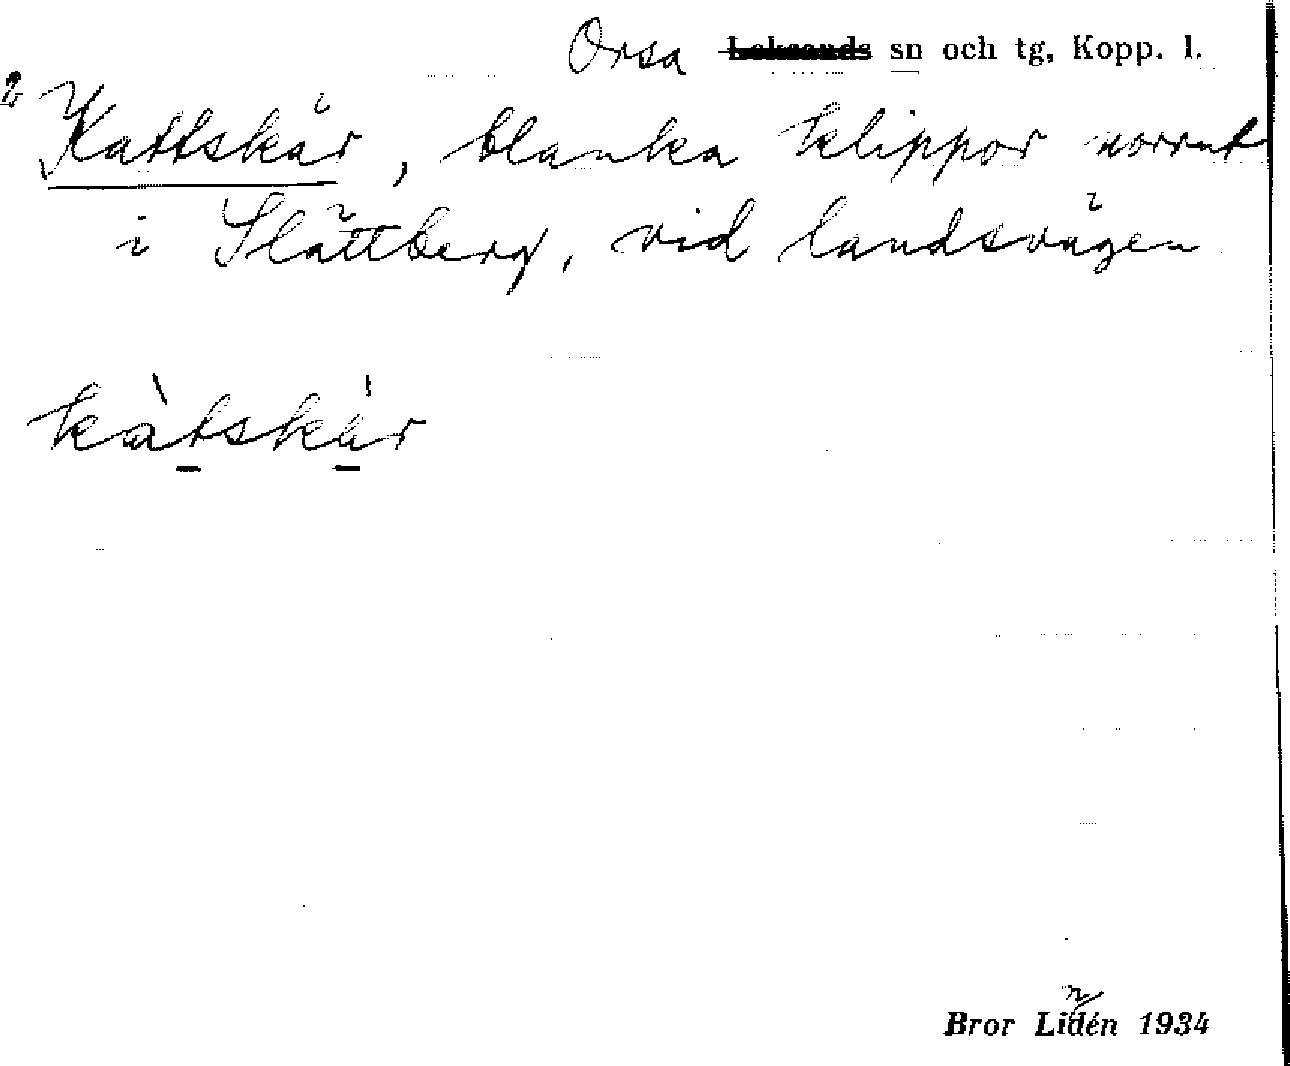 Orsa Leksands sn och tg, Kopp. l.
Kattskär, blanka klippor norrut
i Slättberg, vid landsvägen
kàtskär
Bror Lindén 1934